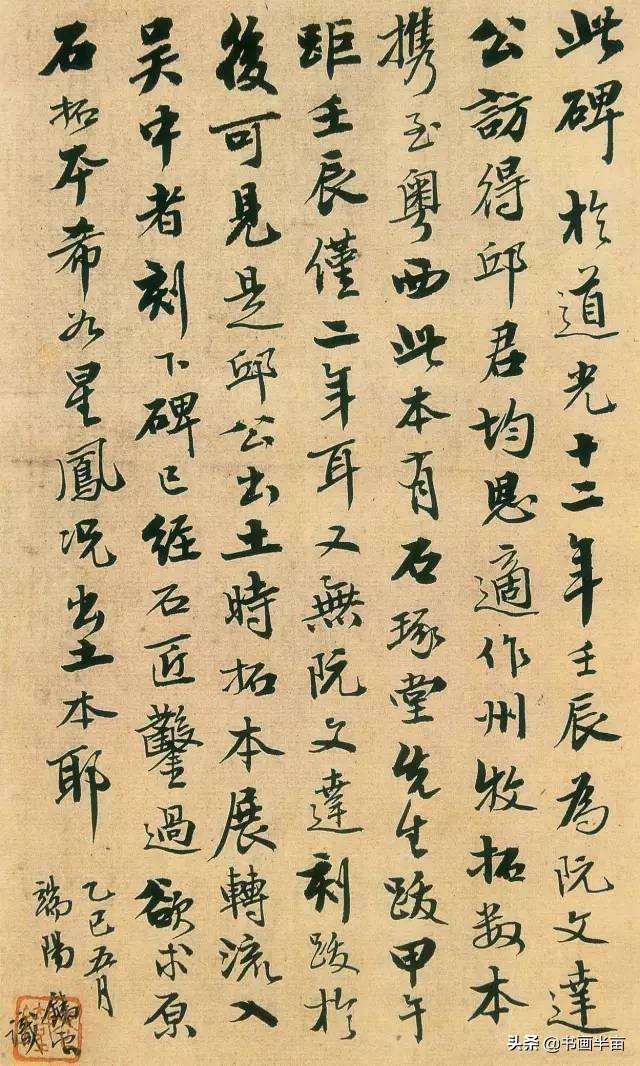 此碑於道光十二年壬辰為阮文達
公訪得邱君均恩適作州牧拓数本
携至粤西此本有石琢堂先生跋甲午
距壬辰僅二年耳又無阮文達刻跋於
後可見是邱公出土時拓本展轉流入
吴中者刻下碑已经石匠鑿過欲求原
石拓本希如星鳳况出土本耶
乙巳五月
端陽
識
头条 @书画半亩